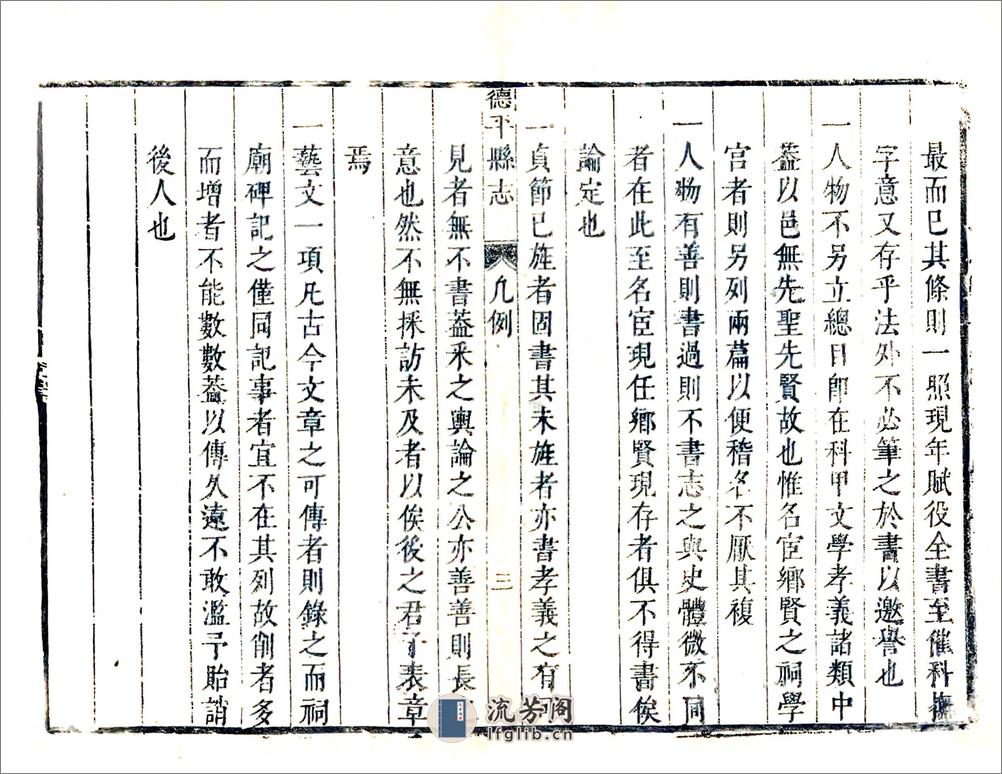 最而已其條則一照現年賦役全書至催科撫
字意又存乎法外不必筆之於書以邀譽也
一人物不另立總目卽在科甲文學孝義諸類中
葢以邑無先聖先賢故也惟名宦鄉賢之祠學
宮者則另列兩篇以便稽名不厭其複
一人物有善則書過則不書志之與史體微不同
者在此至名宦現任鄉賢現存者俱不得書俟
論定也
德平縣志 凡例 三
一貞節已旌者固書其未旌者亦書孝義之有
見者無不書葢釆之輿論之公亦善善則長
意也然不無採訪未及者以俟後之君子表章
焉
一藝文一項凡古今文章之可傳者則錄之而祠
廟碑記之僅同記事者宜不在其列故削者多
而增者不能數數葢以傳久遠不敢濫予貽誚
後人也
流芳阁
lfglib.cn